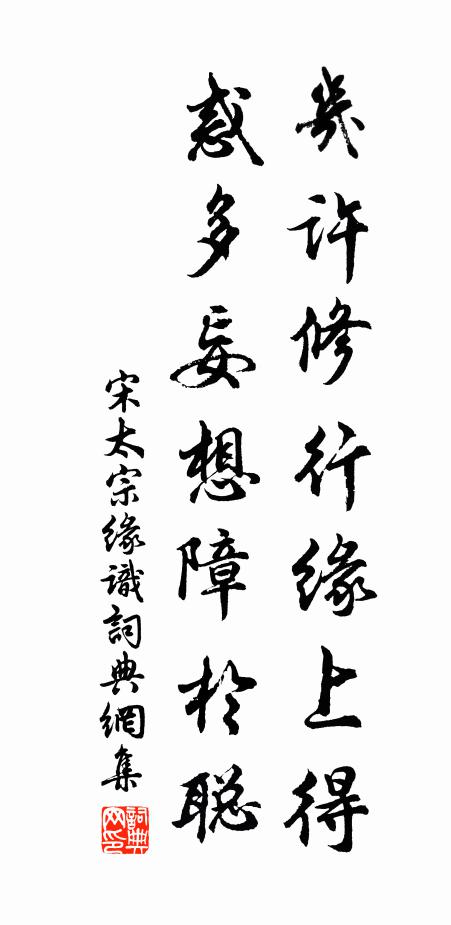 幾許修行緣上得
惑多妄想障於聰
宋太宗緣識詞典網集
詞典網印